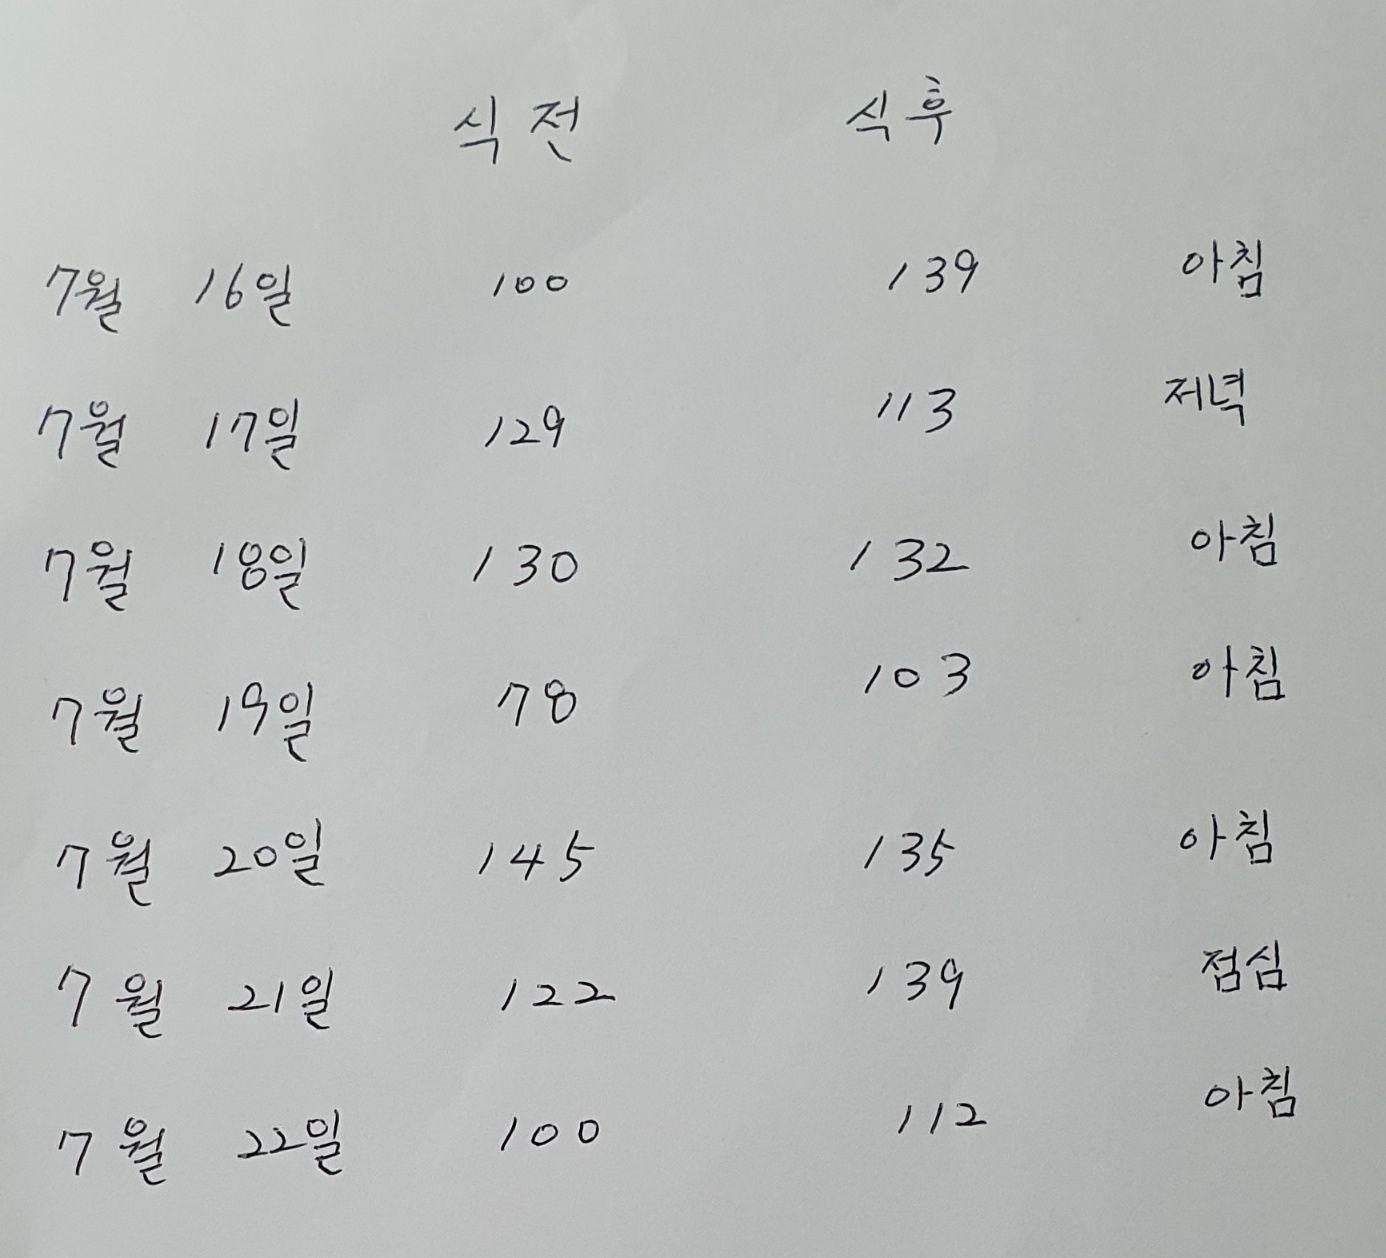 식전 식후
7월 16일 100 139 아침
7월 17일 129 113 저녁
7월 18일 130 132 아침
7월 19일 78 103 아침
7월 20일 145 135 아침
7월 21일 122 139 점심
7월 22일 100 112 아침